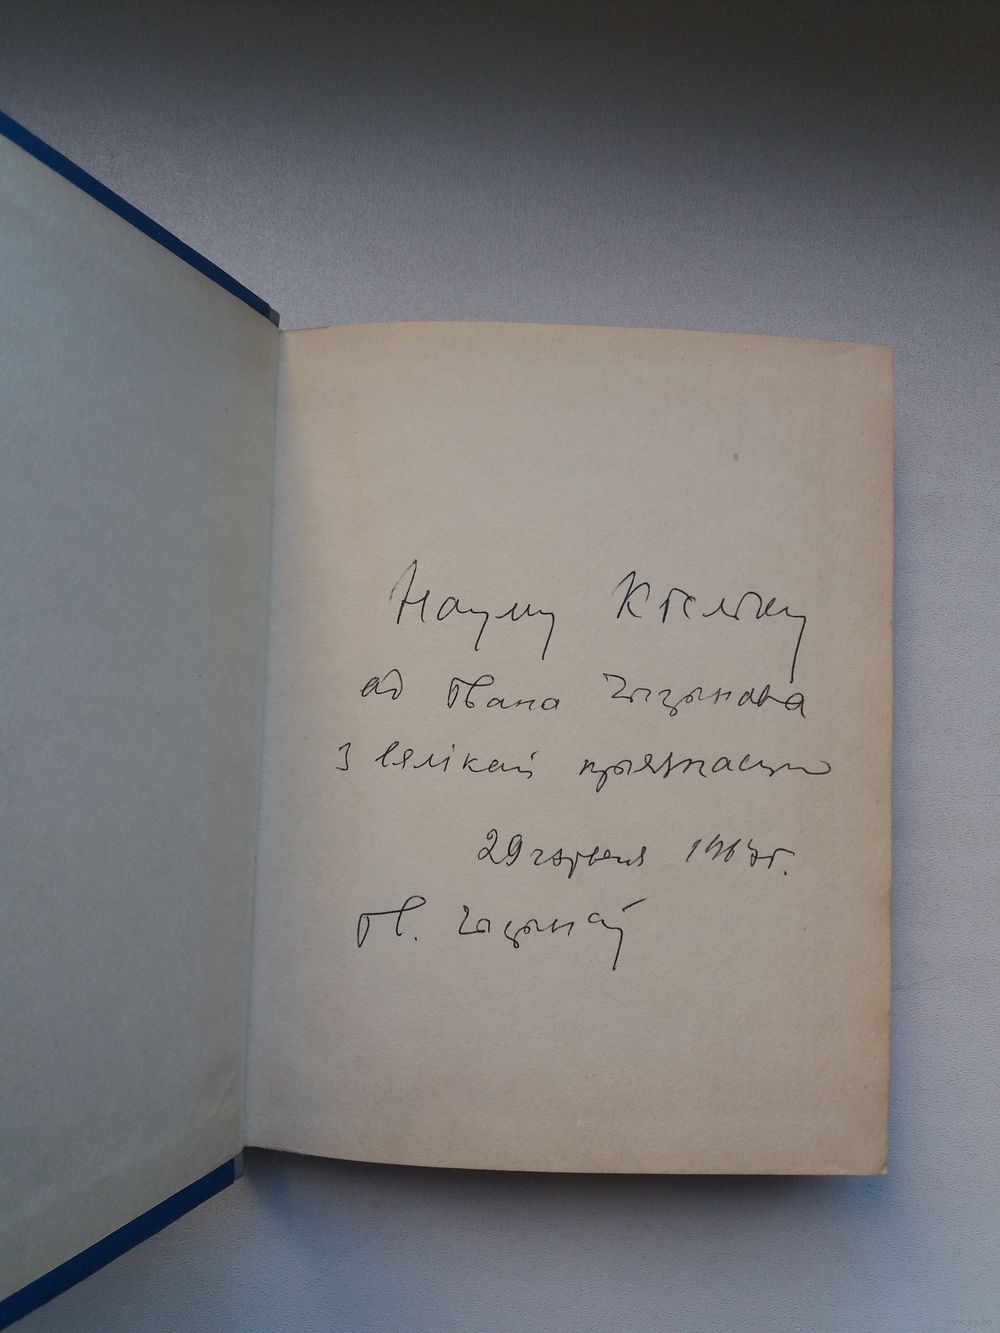 Науму Кіслiку
ад Івана Чыгрынава
з вялікай прыязнасцю
29 жніўня 1967 г.
Ів. Чыгрынаў
www.ay.by